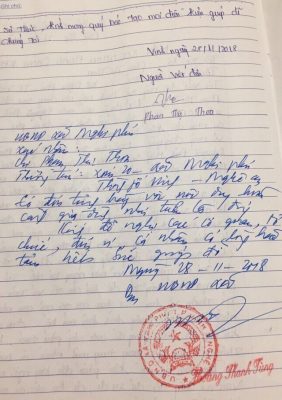 Sở Thuế, kính mong quý bác tạo mọi điều kiện giúp đỡ
chúng tôi
Vinh ngày 28/11/2018
Người viết đơn
Phan Thị Thoa
UBND xã Nghi Phú
Xác nhận:
Chị Phan Thị Thoa
Thường trú: xóm 20 - xã Nghi Phú
Thành phố Vinh - Nghệ An
có đơn trình bày với nội dung hoàn
cảnh gia đình như trên là đúng
Kính đề nghị các cơ quan, tổ
chức, đơn vị, cá nhân có lòng hảo
tâm giúp đỡ
Ngày 28-11-2018
UBND xã
Hoàng Thanh Tùng